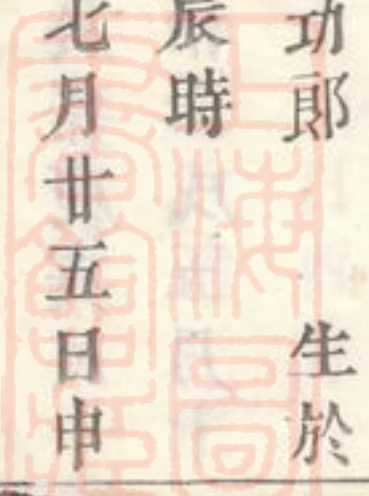 功郎 生於
辰時
七月廿五日申